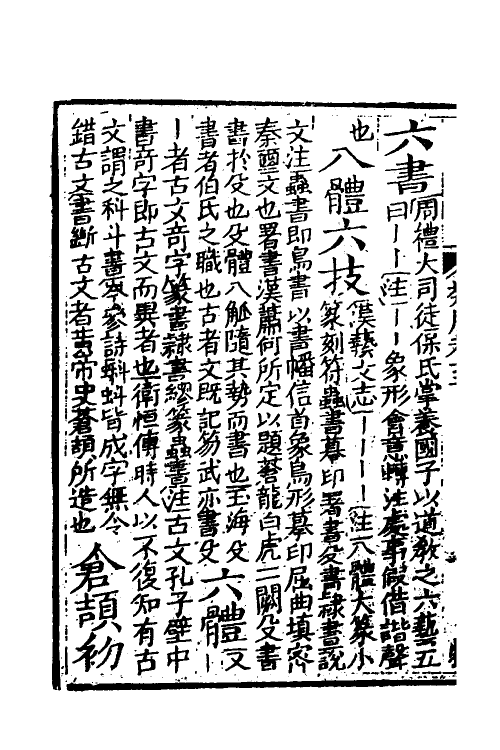 六書
周禮大司徒保氏掌養國子以道教之六藝五
曰丨丨注丨丨象形會意轉注處事假借諧聲
也
八體六技
漢藝文志丨丨丨丨注八體大篆小
篆刻符蟲書摹印署書殳書隸書說
文注蟲書即鳥書以書幡信首象鳥形摹印屈曲填密
秦璽文也署書漢蕭何所定以題蒼龍白虎二闕殳書
書於殳也殳體八觚隨其勢而書也玉海殳
書者伯氏之職也古者文既記笏武亦書殳
六體
又
丨
丨者古文奇字篆書隸書繆篆蟲書注古文孔子壁中
書奇字即古文而異者也衛恒傳時人以不復知有古
文謂之科斗書岑參詩蝌蚪皆成字無令
錯古文書斷古文者黃帝史蒼頡所造也
倉頡初